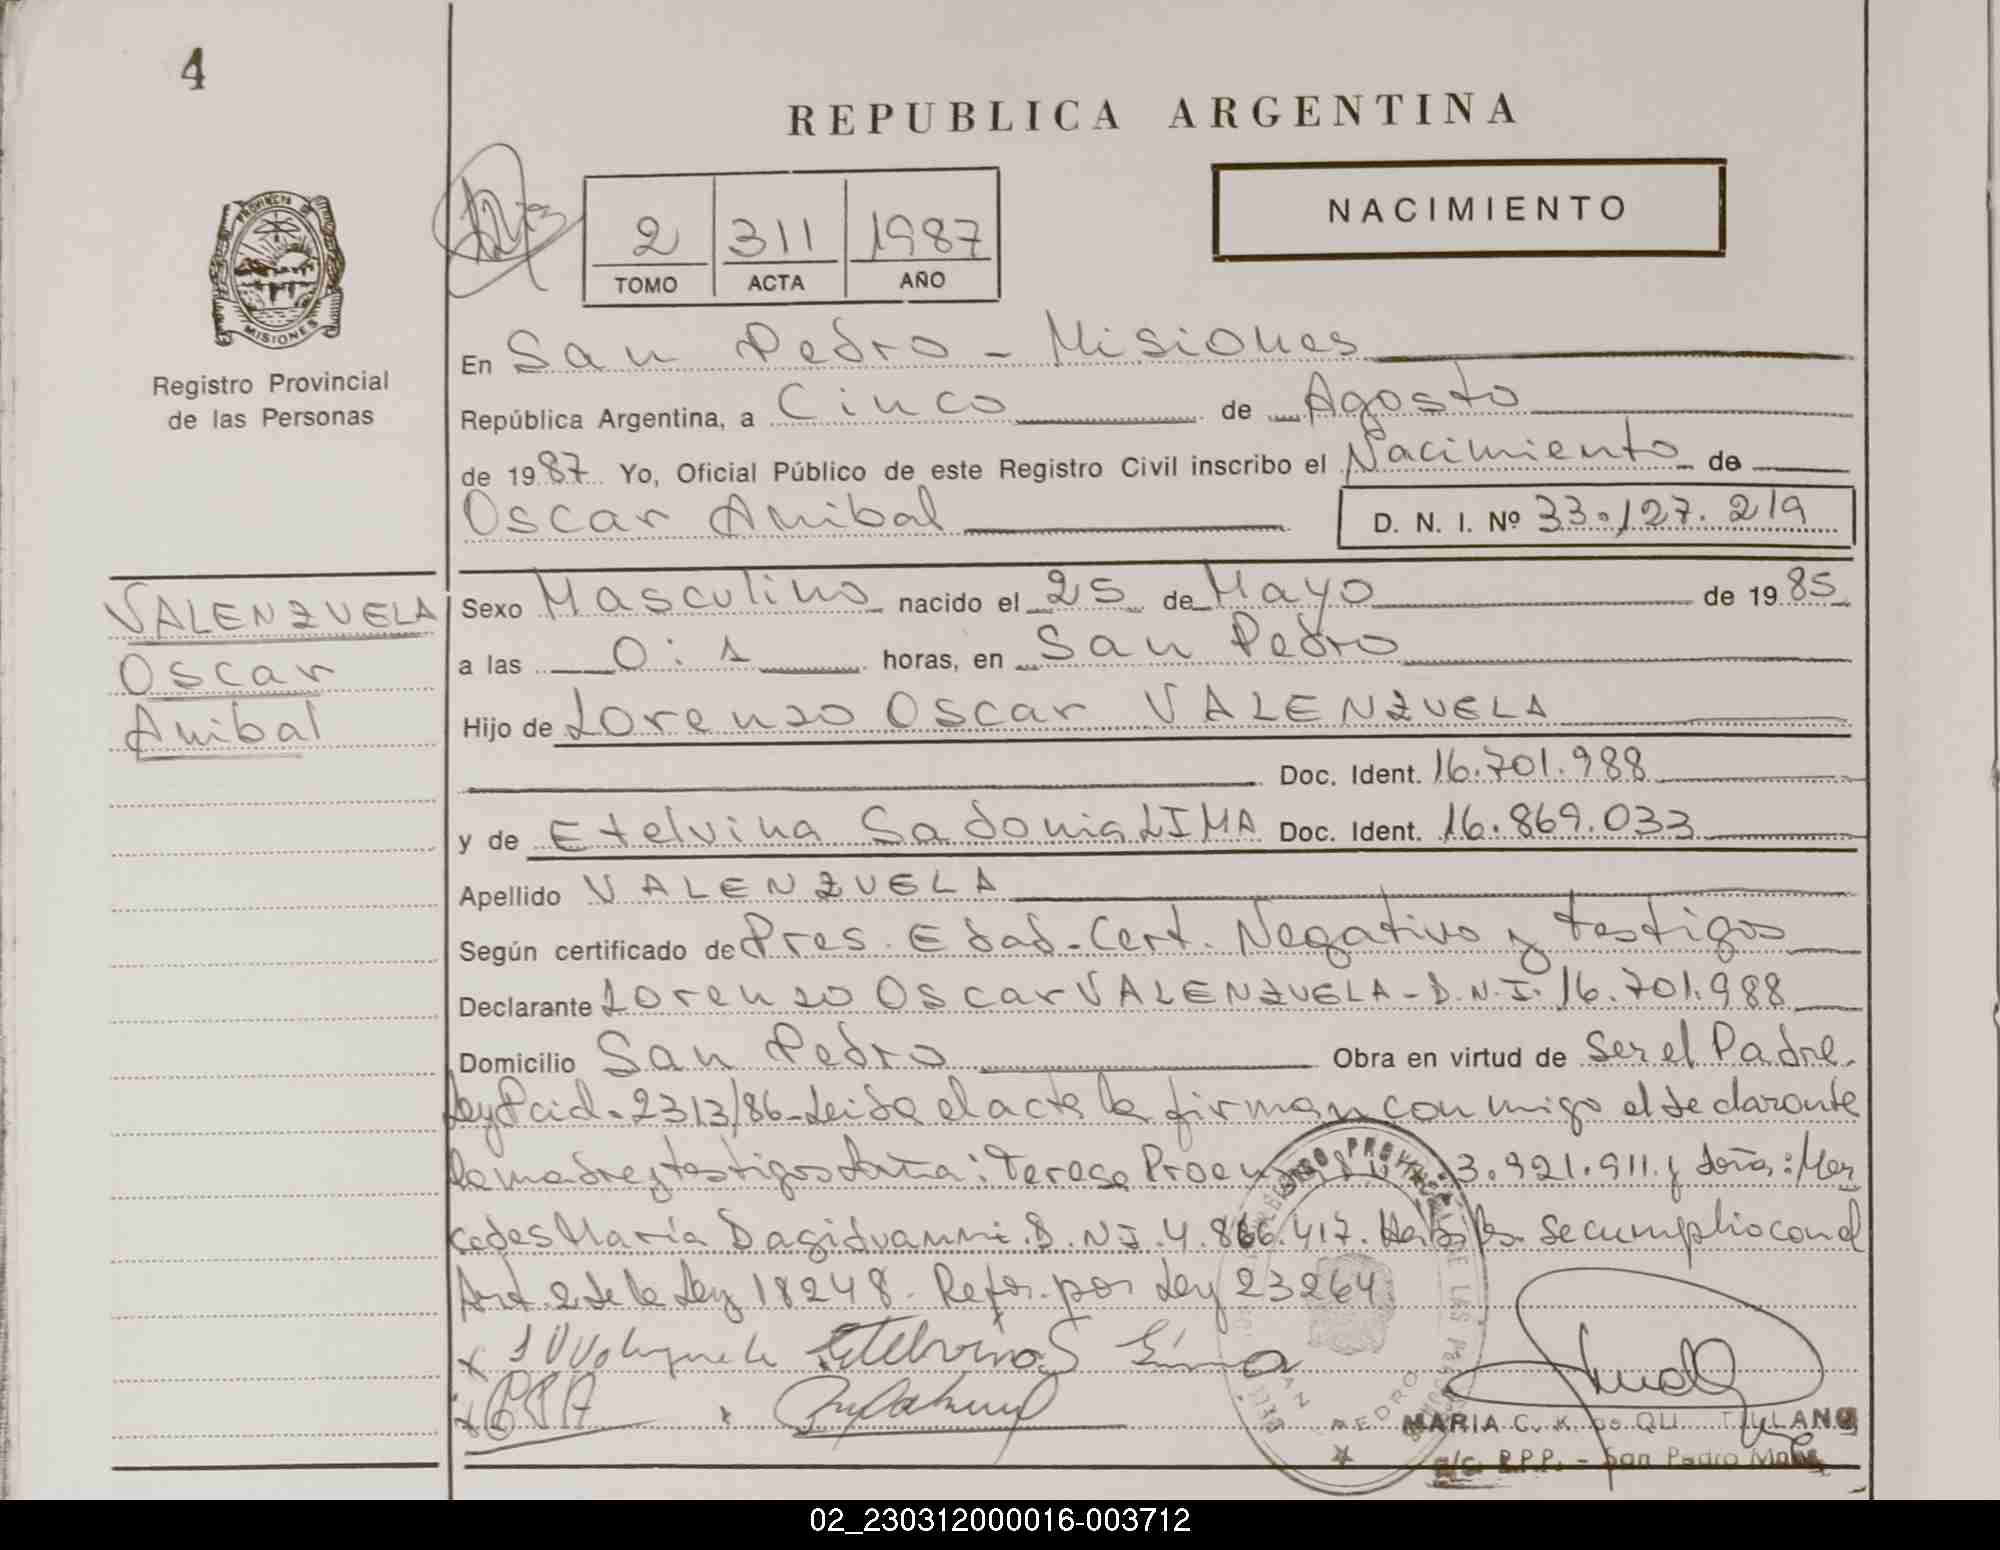 4
REPUBLICA ARGENTINA
PROVINCIA
MISIONES
Registro Provincial
de las Personas
2 311 1987
TOMO ACTA AÑO
NACIMIENTO
En San Pedro - Misiones
República Argentina, a Cinco de Agosto
de 1987. Yo, Oficial Público de este Registro Civil inscribo el Nacimiento de
Oscar Anibal
D. N. I. Nº 33.127.219
VALENZUELA
Oscar
Anibal
Sexo Masculino nacido el 25 de Mayo de 1985
a las 0:1 horas, en San Pedro
Hijo de Lorenzo Oscar VALENZUELA
Doc. Ident. 16.701.988
y de Etelvina Sadonia LIMA Doc. Ident. 16.869.033
Apellido VALENZUELA
Según certificado de Pres. Edad - Cert. Negativo y testigos
Declarante Lorenzo Oscar VALENZUELA - D.N.I. 16.701.988
Domicilio San Pedro Obra en virtud de Ser el Padre.
Ley Pcial. 2313/86 - Leida el acta la firman con migo el declarante
la madre y testigos doña: Teresa 3.921.911. y doña: Mer
cedes María D.N.I. 4.866.417. Se cumplio con el
Art. 2 de la Ley 18248. Refor. por Ley 23264
Etelvina S Lima
MARIA C. K. DE
a/c. R.P.P. - San Pedro Mnes
02_230312000016-003712